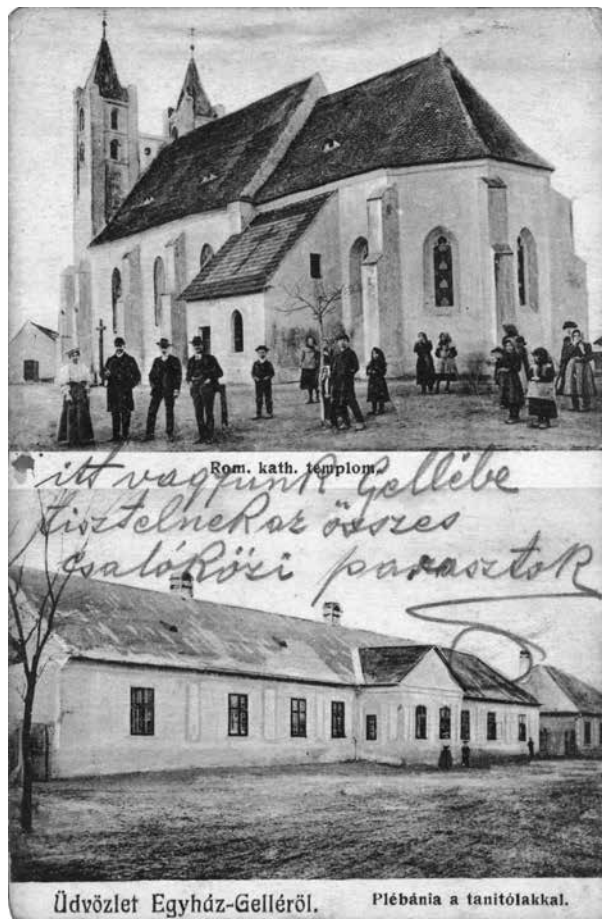 Rom. kath. templom.
itt vagyunk Gellébe
tisztelnek az összes
csalóközi parasztok
Üdvözlet Egyház-Gelléről.
Plébánia a tanitólakkal.